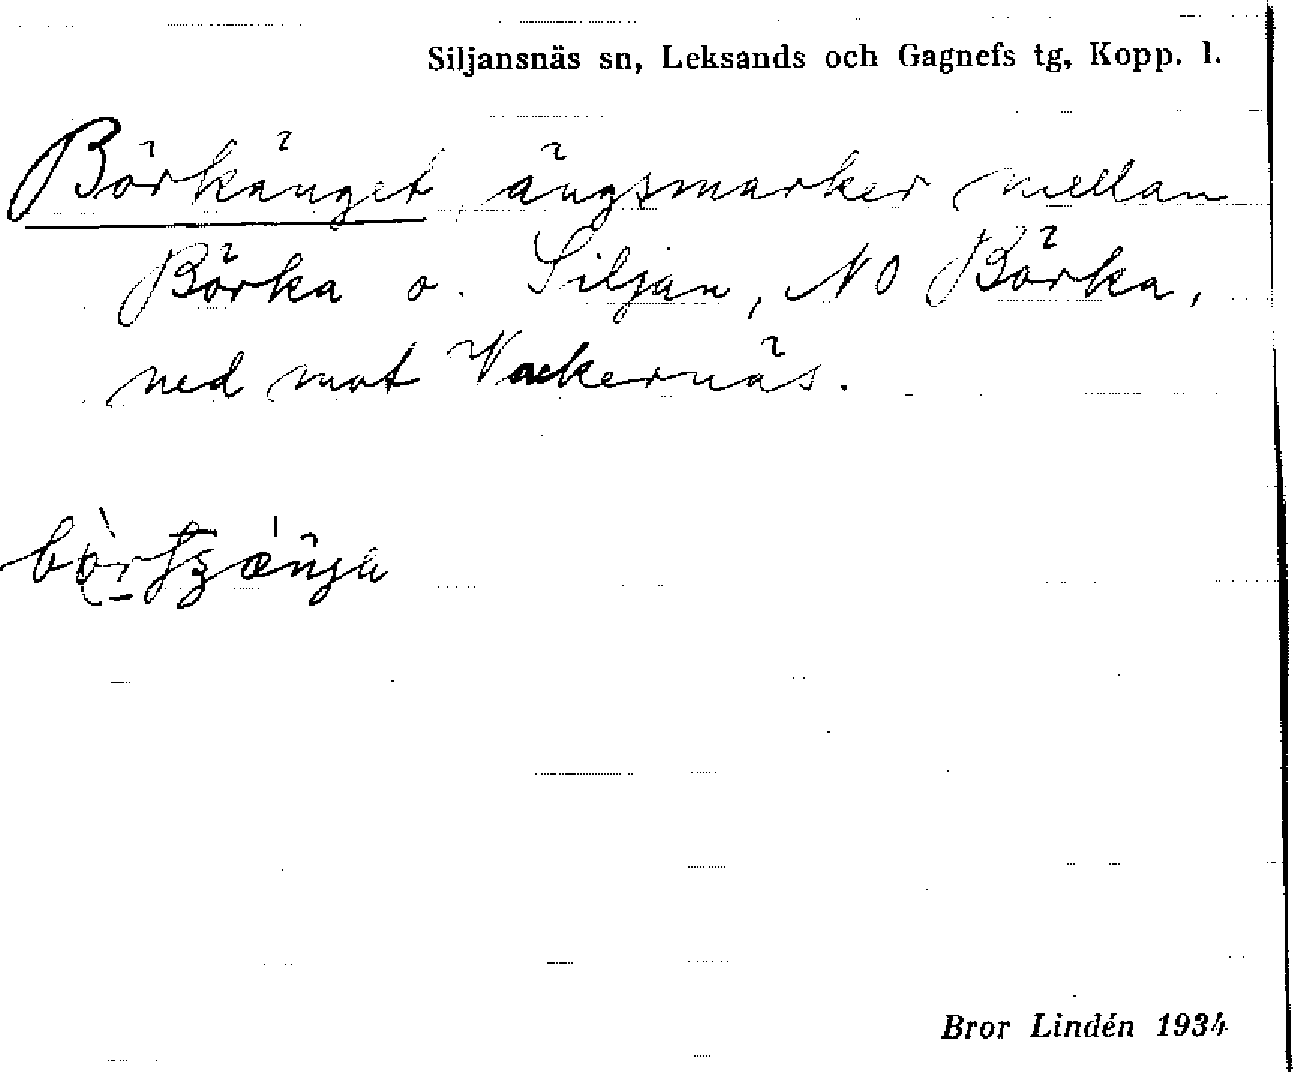 Siljansnäs sn, Leksands och Gagnefs tg, Kopp. l.
Börkänget ängsmarker mellan
Börka o. Siljan, NO Börka,
ned mot Vackernäs.
Bror Lindén 1934